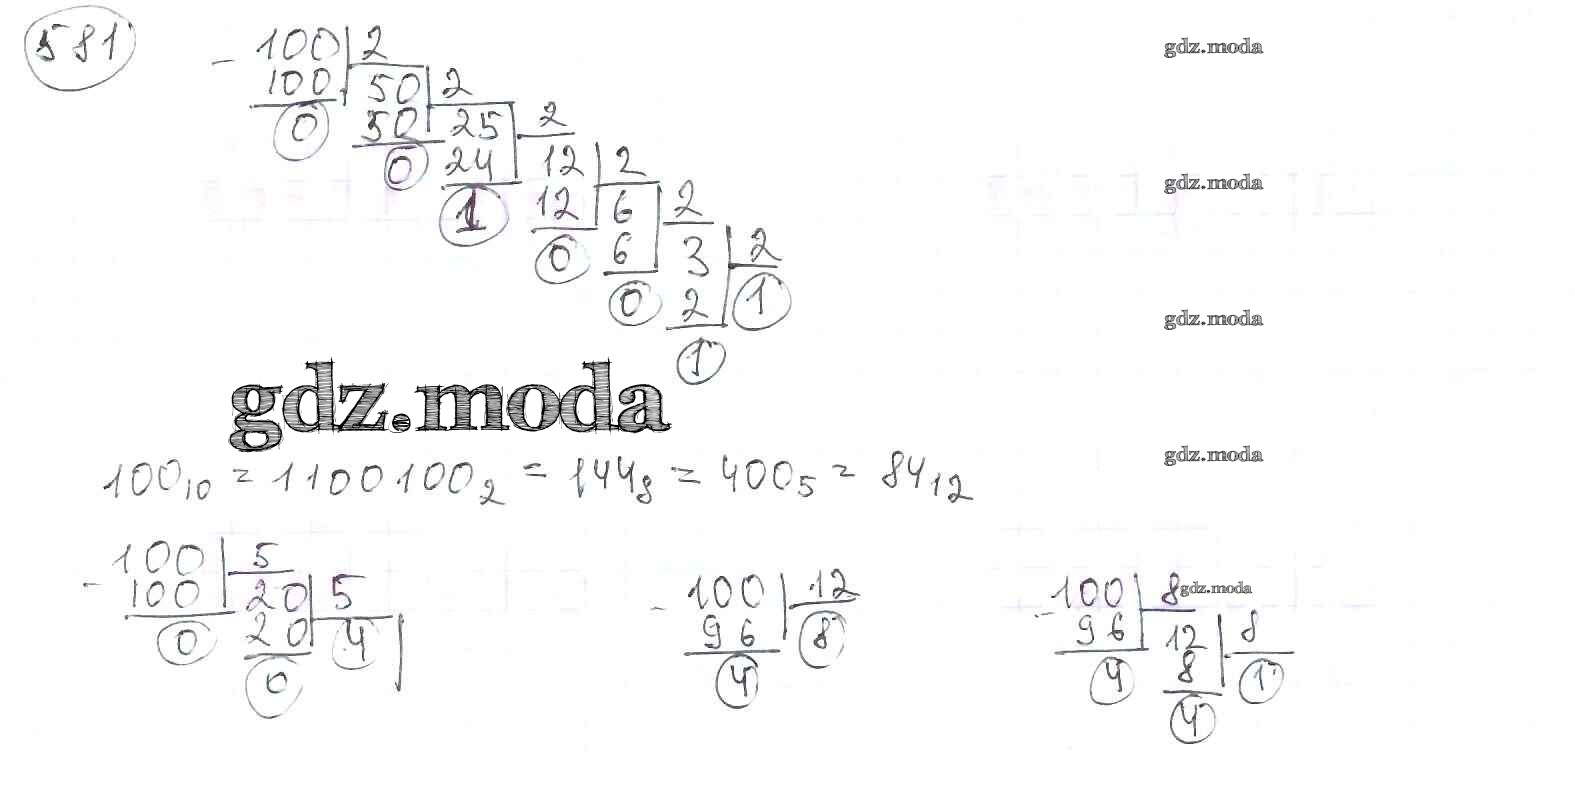 581
- 100 | 2
100 | 50 | 2
0 | 50 | 25 | 2
0 | 24 | 12 | 2
1 | 12 | 6 | 2
0 | 6 | 3 | 2
0 | 2 | 1
1
gdz.moda
100₁₀ = 1100100₂ = 144₈ = 400₅ = 84₁₂
- 100 | 5
100 | 20 | 5
0 | 20 | 4
0
- 100 | 12
96 | 8
4
- 100 | 8
96 | 12 | 8
4 | 8 | 1
4
gdz.moda
gdz.moda
gdz.moda
gdz.moda
gdz.moda